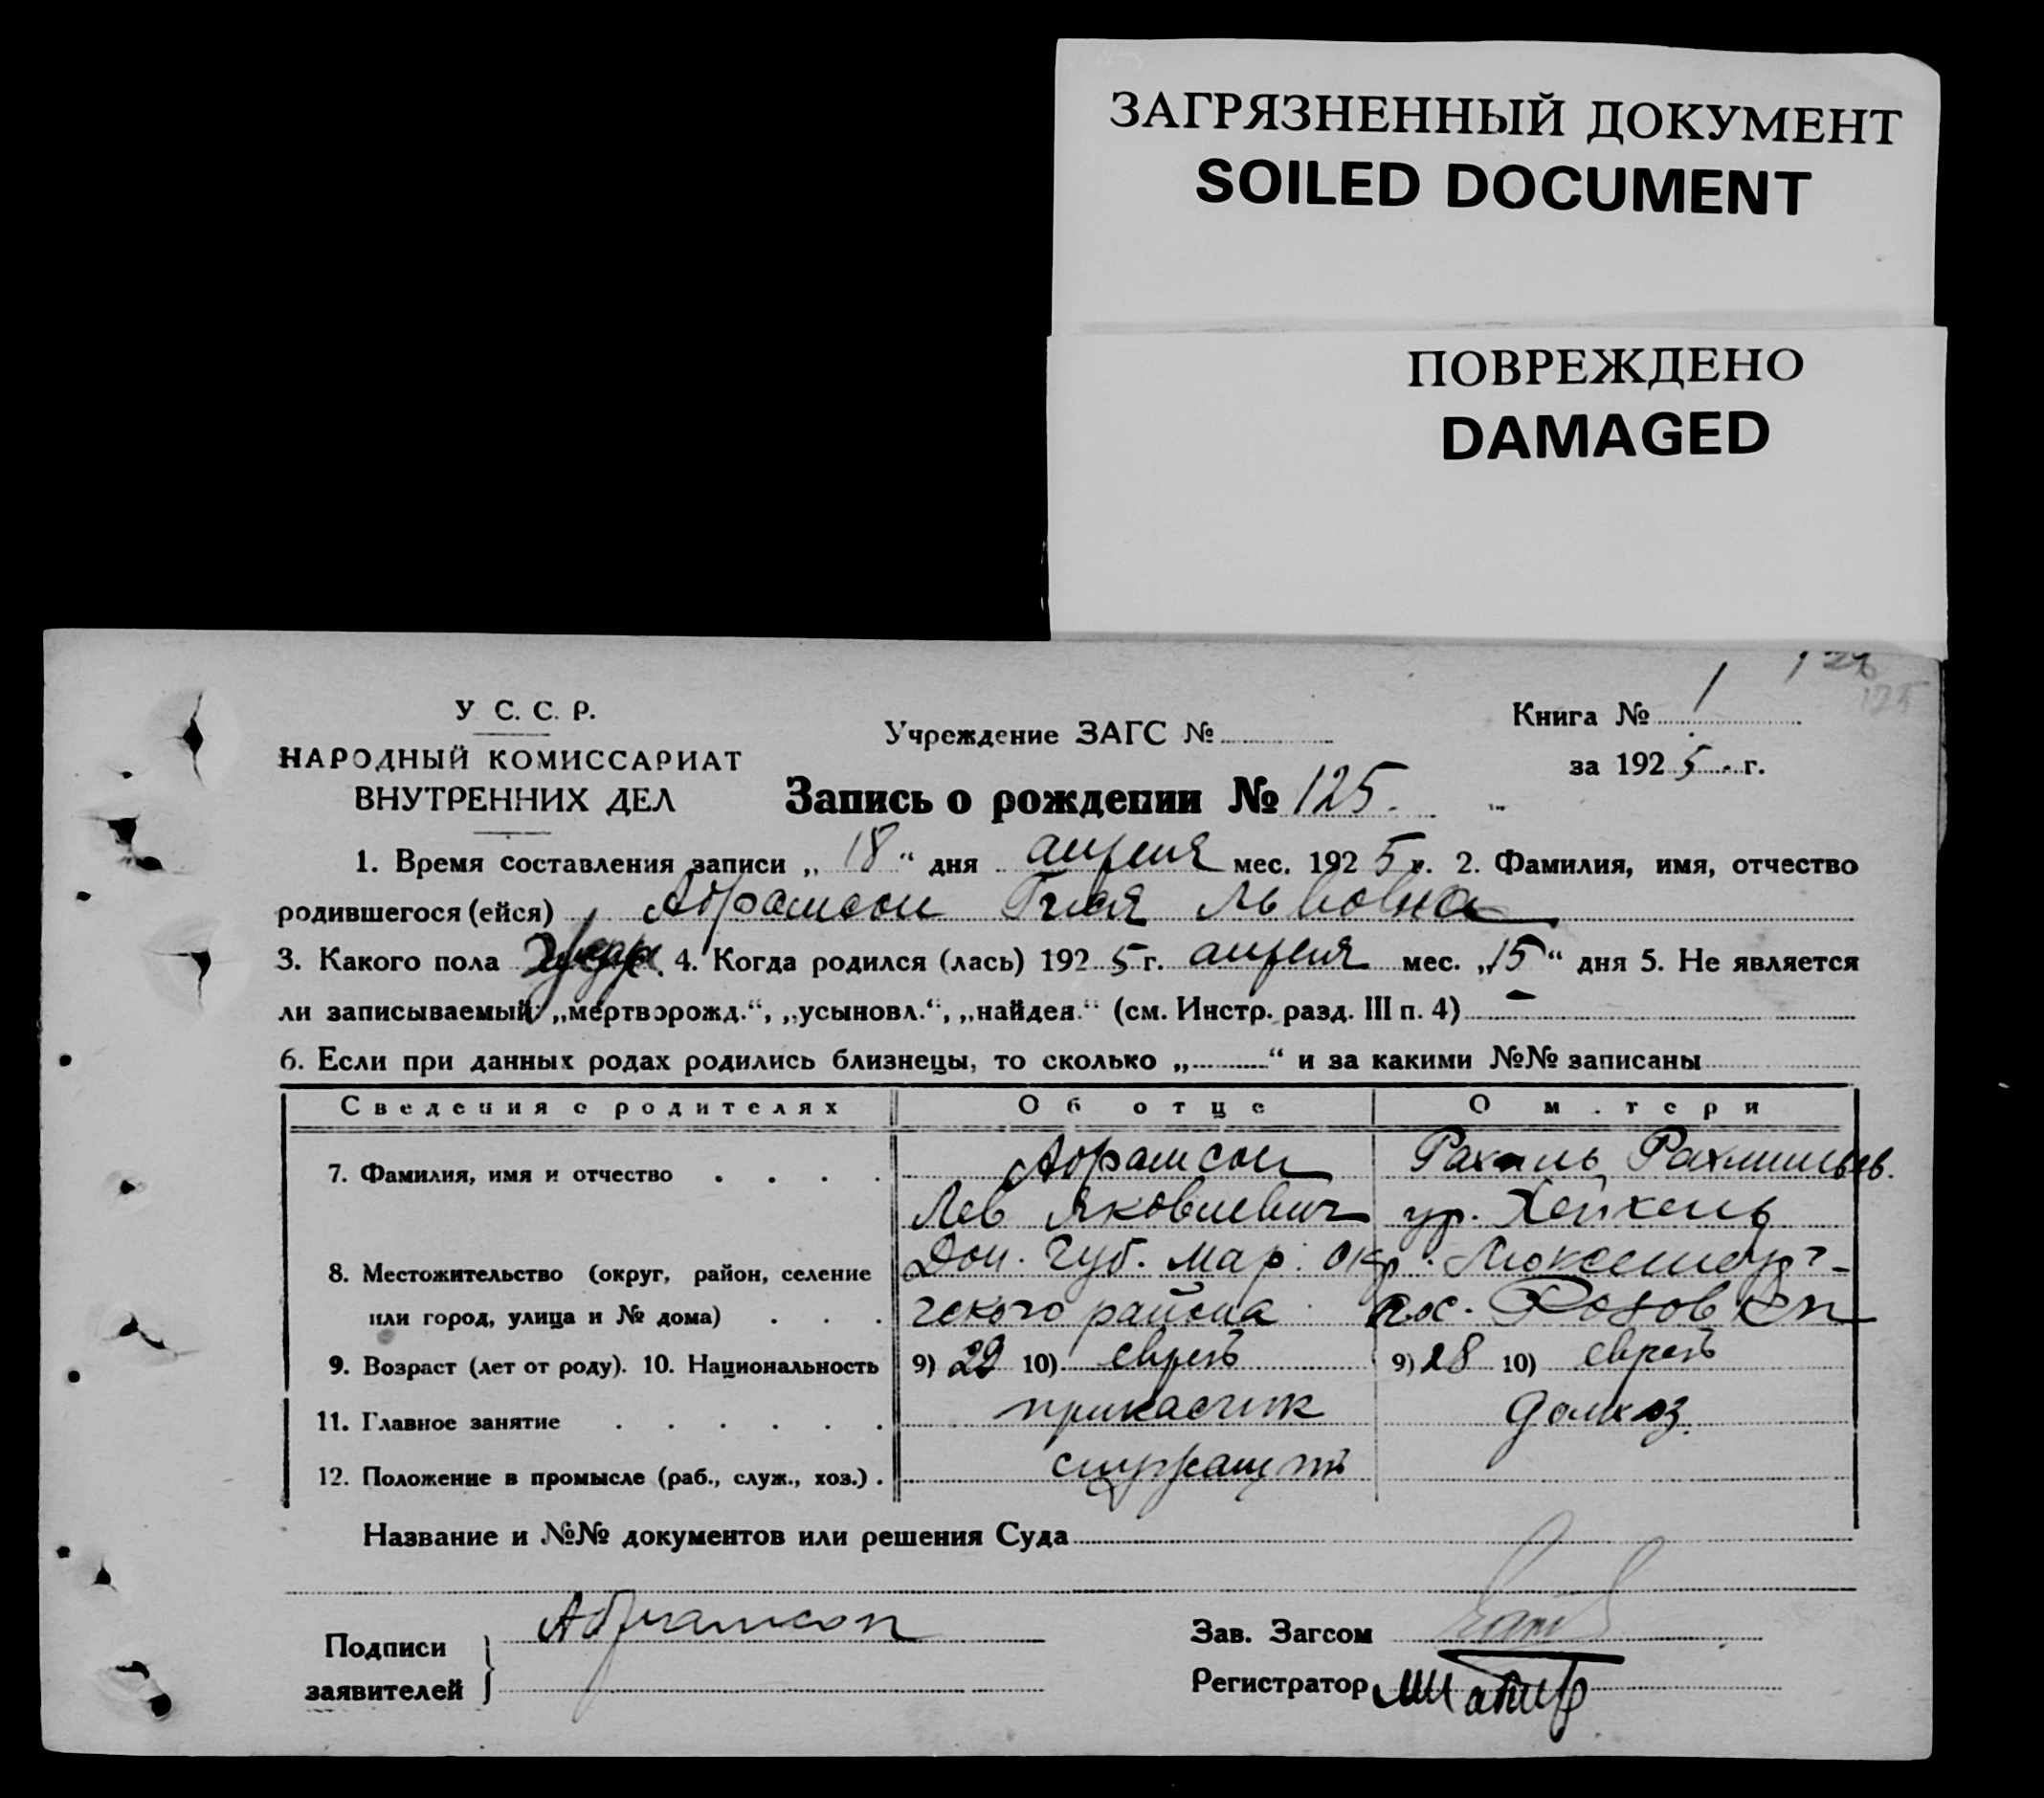 ЗАГРЯЗНЕННЫЙ ДОКУМЕНТ
SOILED DOCUMENT
ПОВРЕЖДЕНО
DAMAGED
У С. С. Р.
НАРОДНЫЙ КОМИССАРИАТ
ВНУТРЕННИХ ДЕЛ
Учреждение ЗАГС №
Книга № 1
за 1925 г.
Запись о рождении № 125.
1. Время составления записи „ 18 “ дня апреля мес. 1925 г. 2. Фамилия, имя, отчество
родившегося (ейся) Абрамсон Львовна
3. Какого пола 4. Когда родился (лась) 1925 г. апреля мес. „15“ дня 5. Не является
ли записываемый „мертворожд.“, „усыновл.“, „найден.“ (см. Инстр. разд. III п. 4) –
6. Если при данных родах родились близнецы, то сколько „ “ и за какими №№ записаны
Сведения о родителях Об отце О м. тери
7. Фамилия, имя и отчество . . . . Абрамсон Рахиль Рахмильев.
Лев Яковлевич ур. Хейхель
8. Местожительство (округ, район, селение Дон. Губ. Мар. окр. Люксембург-
или город, улица и № дома) . . . ского района
9. Возраст (лет от роду). 10. Национальность 9) 29 10) еврей 9) 28 10) еврей
11. Главное занятие . . . . . . прикасчик домхоз.
12. Положение в промысле (раб., служ., хоз.) . служащий
Название и №№ документов или решения Суда
Подписи
заявителей } Абрамсон
Зав. Загсом
Регистратор